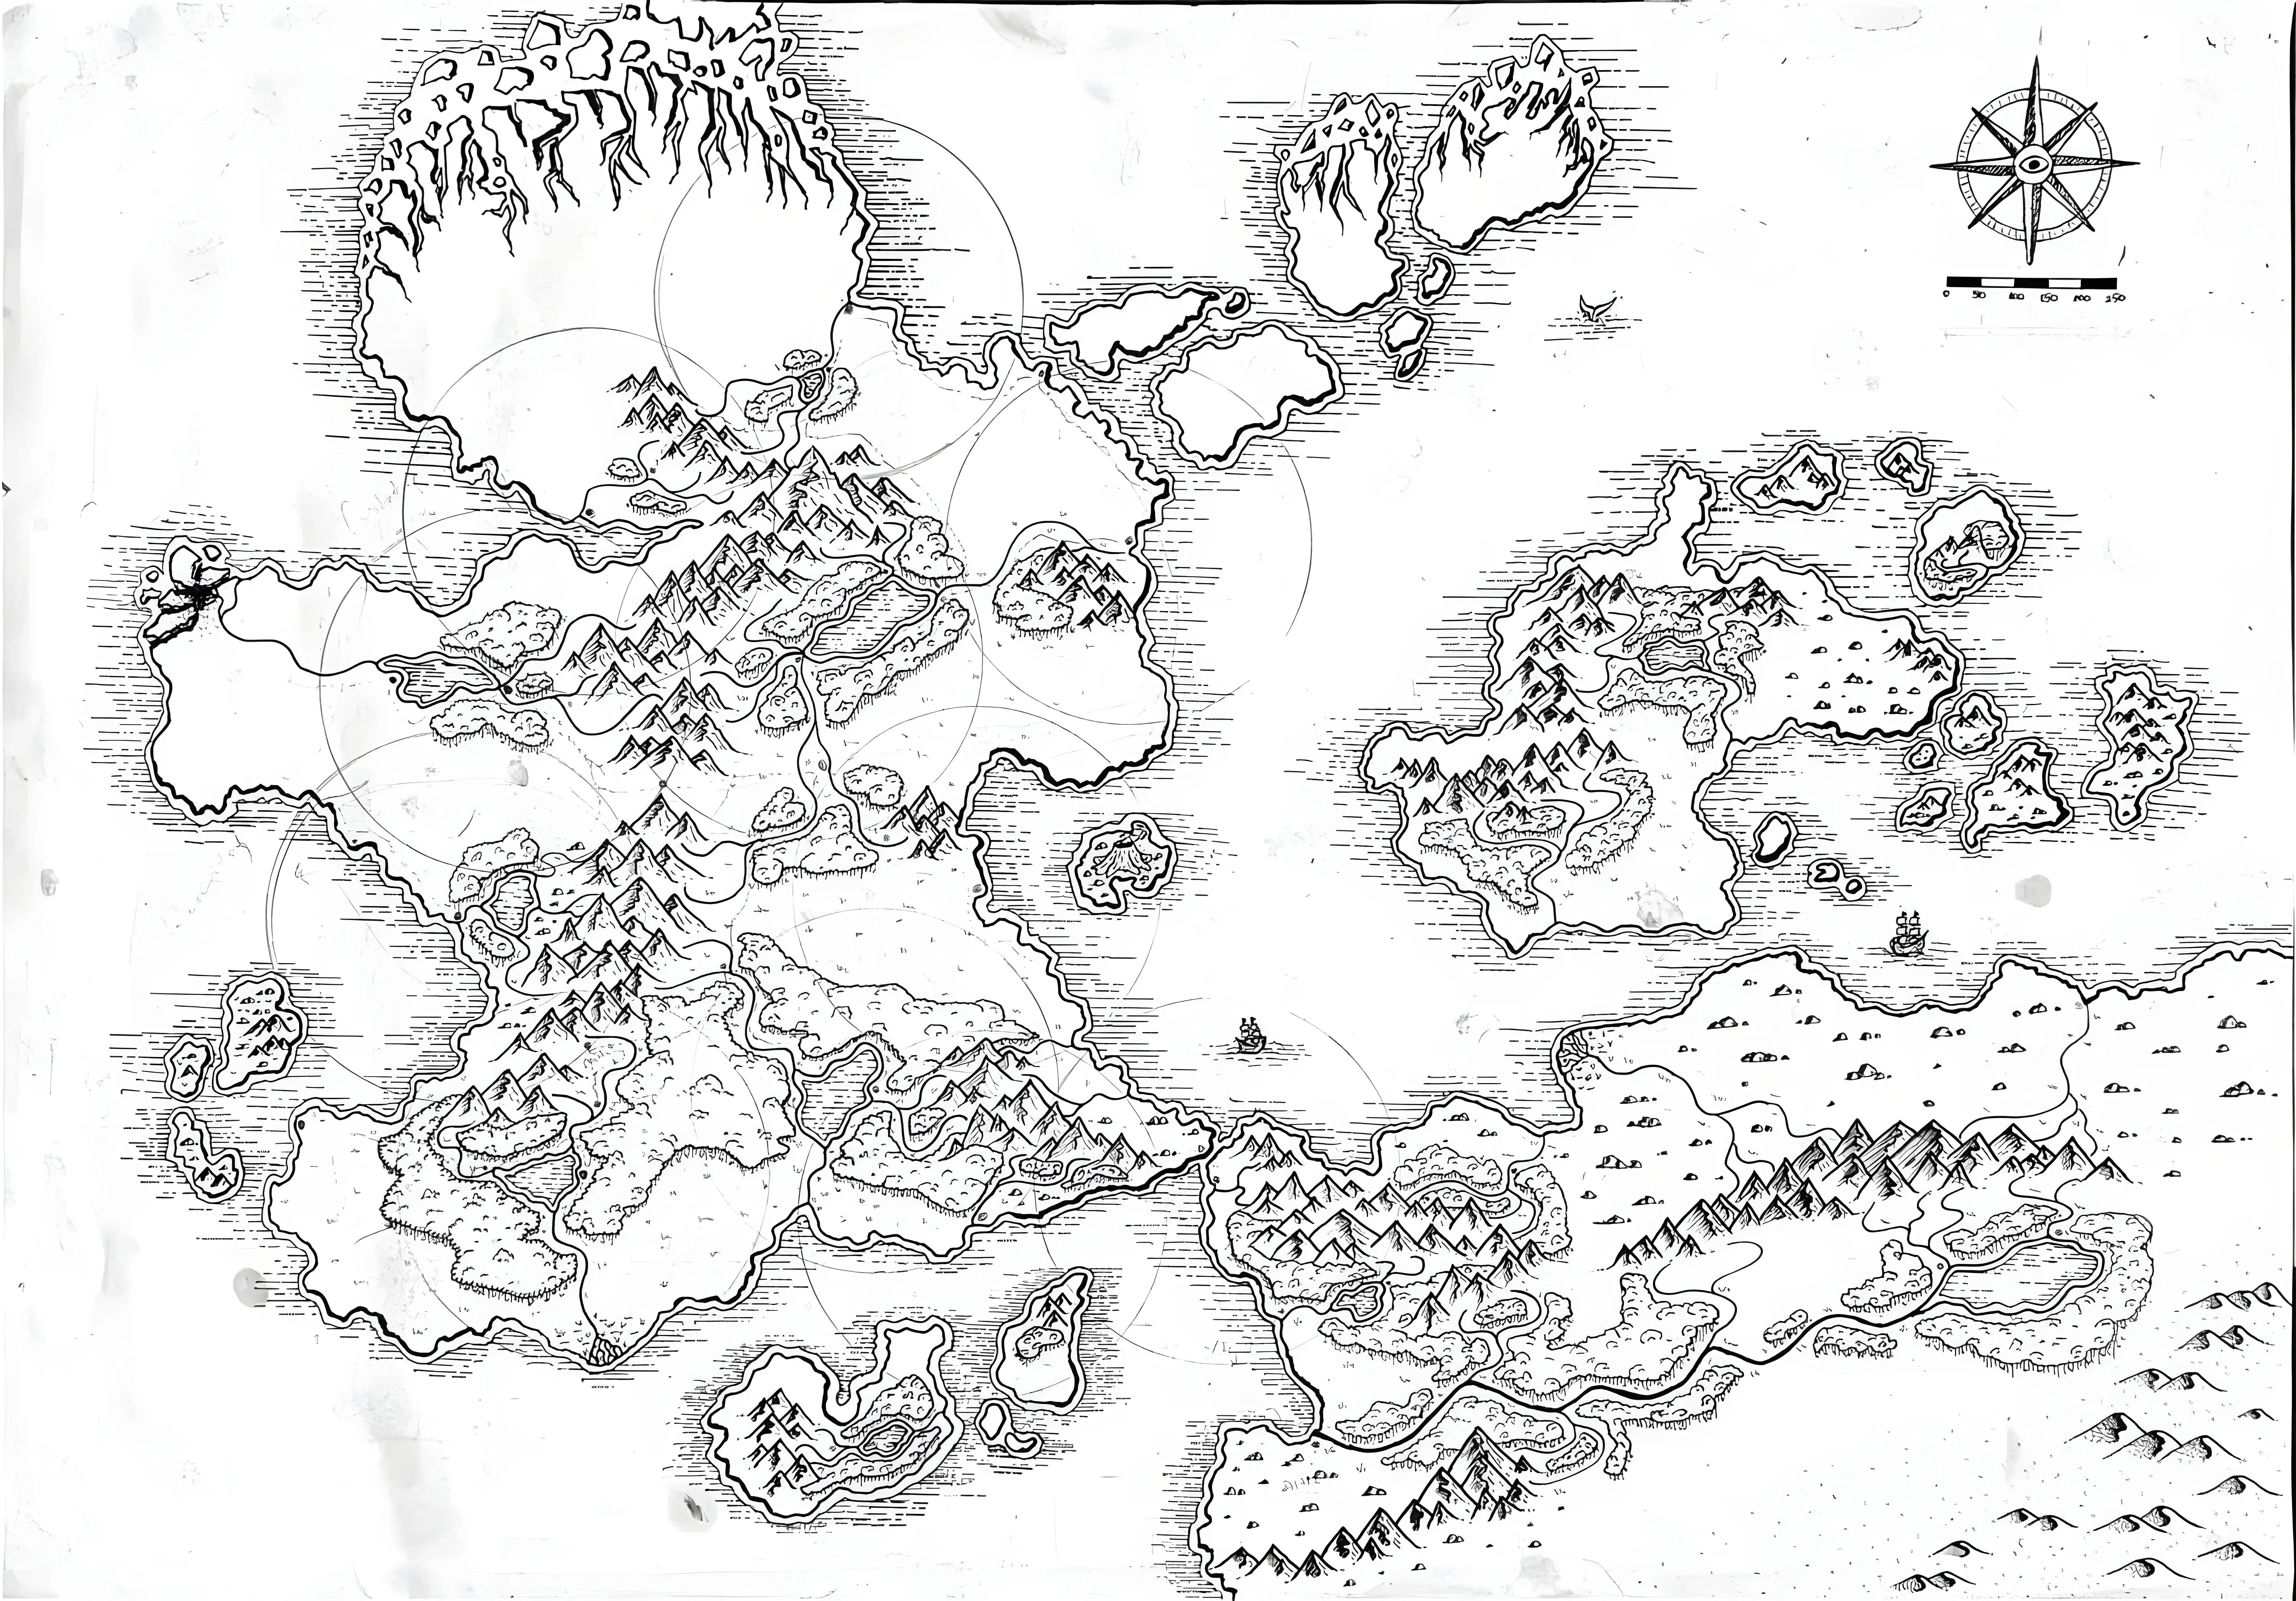 0 50 100 150 200 250